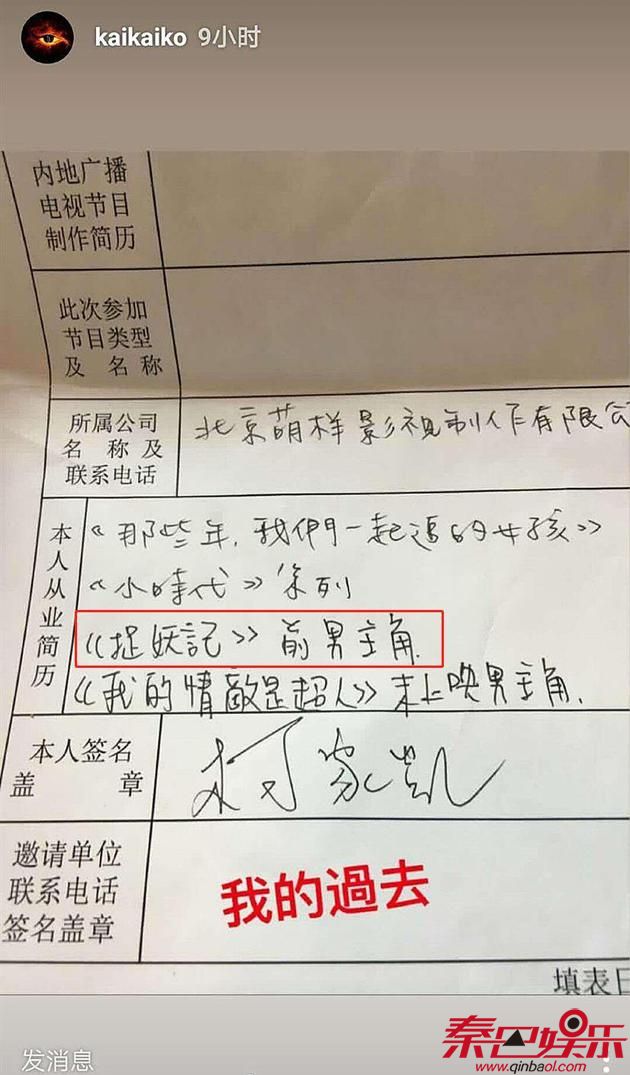 kaikaiko 9小时
内地广播
电视节目
制作简历
此次参加
节目类型
及 名 称
所属公司
名 称 及
联系电话
北京萌样影视制作有限公
本人从业简历
《那些年,我們一起追的女孩》
《小時代》系列
《捉妖記》前男主角.
《我的情敵是超人》未上映男主角.
本人签名
盖 章
柯家凯
邀请单位
联系电话
签名盖章
我的過去
填表日
发消息
秦巴娱乐
www.qinbaol.com